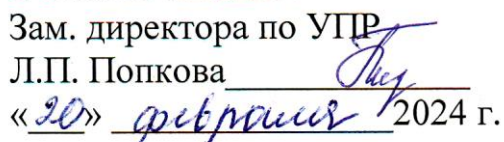 Зам. директора по УПР
Л.П. Попкова
«20» февраля 2024 г.